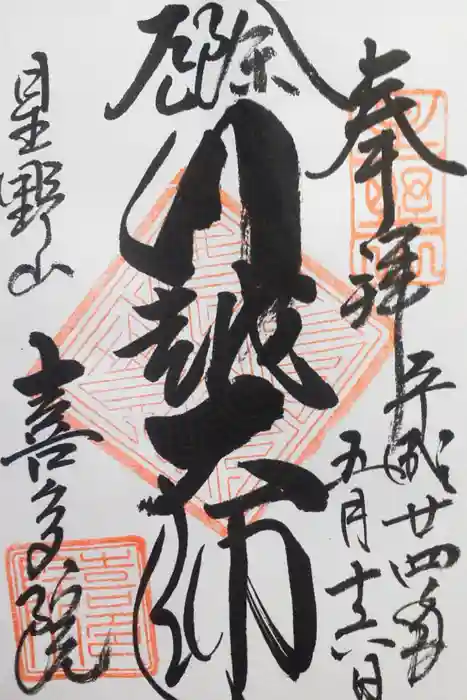 奉拝
平成廿四年
五月十六日
厄除
川越大師
星野山
喜多院